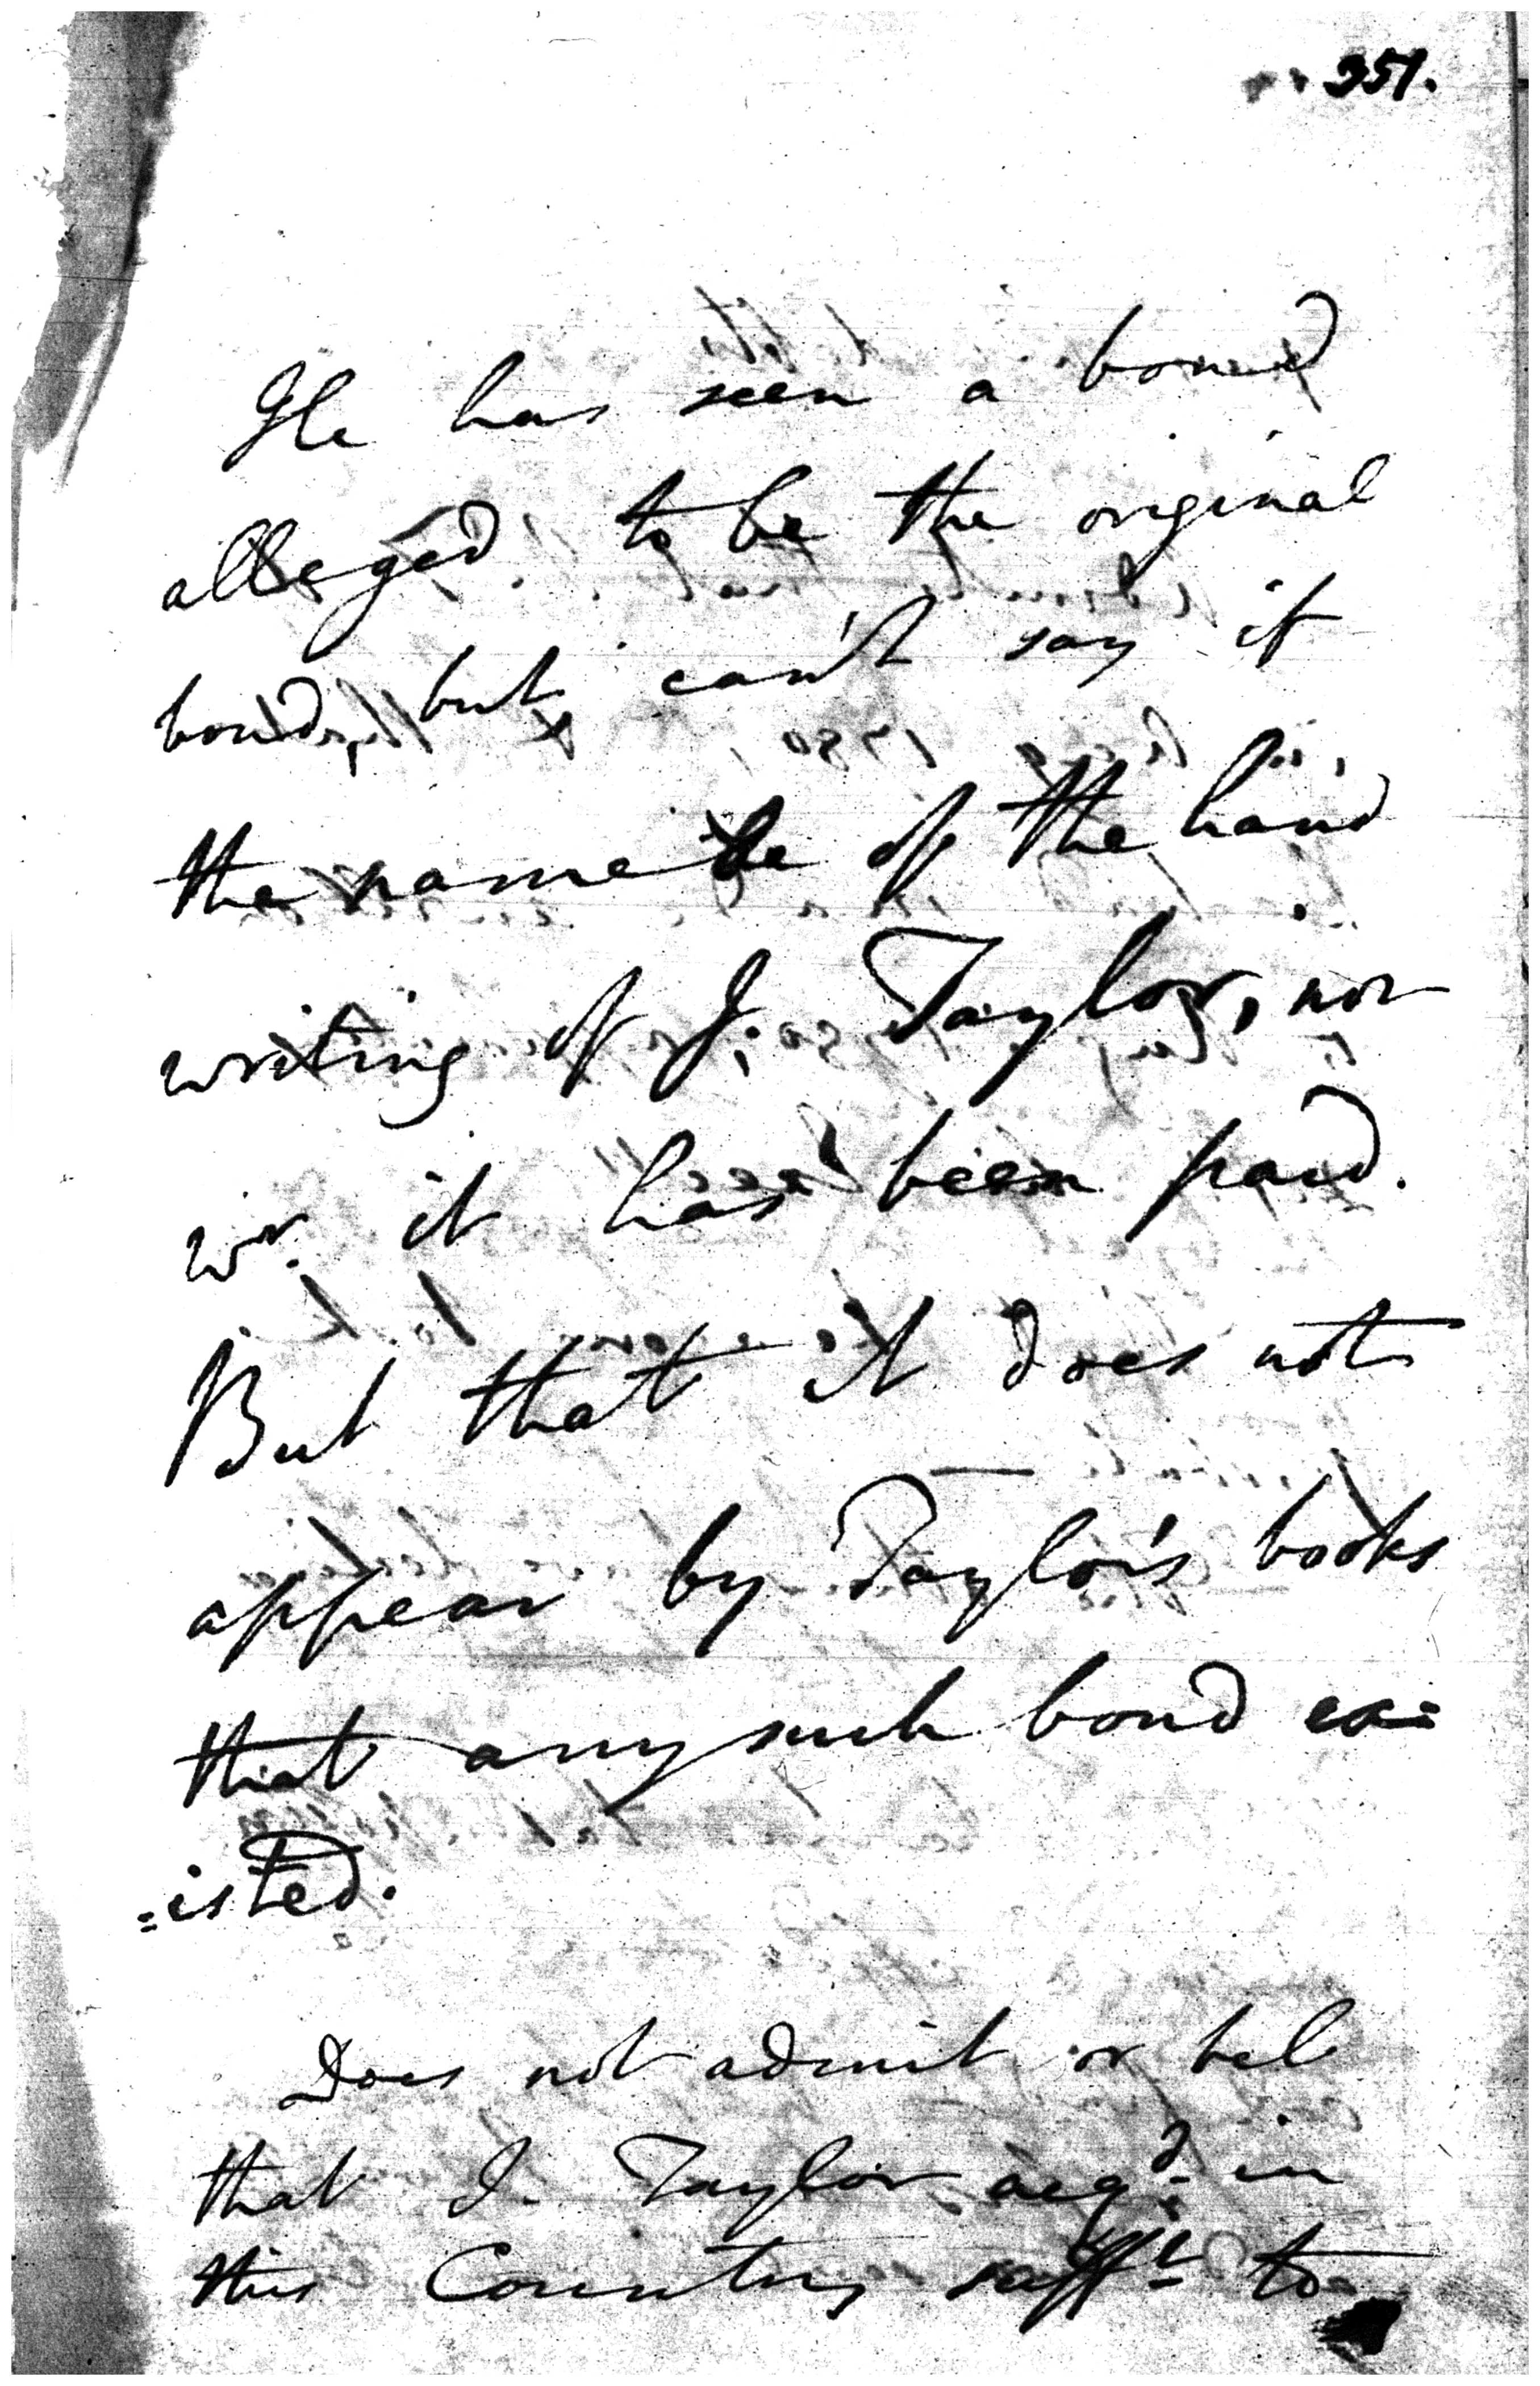 351.
He has seen a bond
alleged to be the original
bond, but can't say if
the name be of the hand
writing of J. Taylor, nor
wr. it has been paid.
But that it does not
appear by Taylor's books
that any such bond ex=
=isted.
Does not admit or bel
that J. Taylor acqd. in
this Country sufft. to